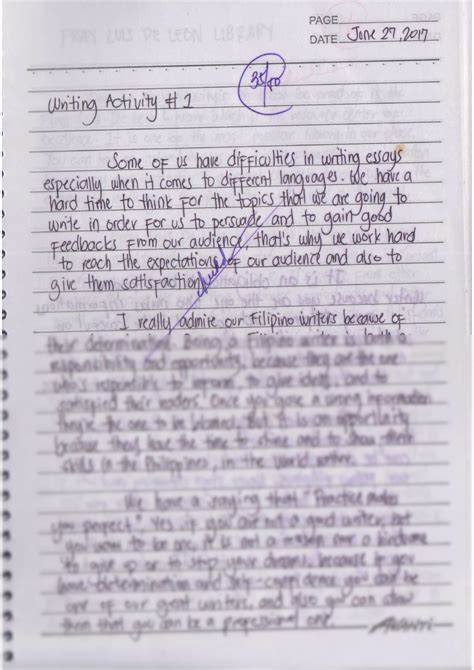 PAGE
DATE June 27, 2017
35/50
Writing Activity # 1
Some of us have difficulties in writing essays
especially when it comes to different languages. We have a
hard time to think for the topics that we are going to
write in order for us to persuade and to gain good
feedbacks from our audience that's why we work hard
to reach the expectations of our audience and also to
give them satisfaction.
I really admire our Filipino writers because of
their determination. Being a Filipino writer is both a
responsibility and opportunity, because they are the one
who's responsible to inform, to give ideas, and to
satisfied their readers. Once you gave a wrong information
they're the one to be blamed. But it is an opportunity
because they have the time to shine and to show their
skills in the Philippines, in the world
We have a saying that "Practice makes
you perfect". Yes, if you are not a good writer, but
you want to be one, it is not a reason or a hindrance
to give up or to stop your dreams, because if you
have determination and self-confidence you can be
one of our great writers, and also you can show
them that you can be a professional one.